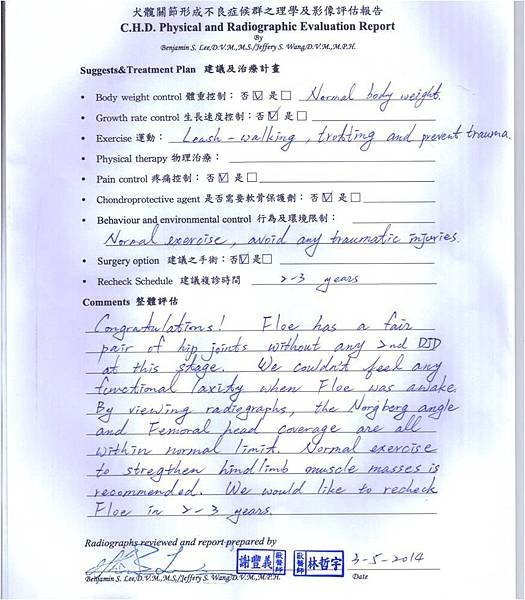 犬髖關節形成不良症候群之理學及影像評估報告
C.H.D. Physical and Radiographic Evaluation Report
By
Benjamin S. Lee,D.V.M.,M.S./Jeffery S. Wang,D.V.M.,M.P.H.
Suggests&Treatment Plan 建議及治療計畫
• Body weight control 體重控制：否☑ 是☐ Normal body weight.
• Growth rate control 生長速度控制：否☑ 是☐
• Exercise 運動： Leash-walking, trotting and prevent trauma.
• Physical therapy 物理治療：
• Pain control 疼痛控制：否☑ 是☐
• Chondroprotective agent 是否需要軟骨保護劑：否☑ 是☐
• Behaviour and environmental control 行為及環境限制：
Normal exercise, avoid any traumatic injuries.
• Surgery option 建議之手術：否☑是☐
• Recheck Schedule 建議複診時間 2-3 years
Comments 整體評估
Congratulations! Floe has a fair
pair of hip joints without any 2nd DJD
at this stage. We couldn't feel any
functional laxity when Floe was awake.
By viewing radiographs, the Norgberg angle
and Femoral head coverage are all
within normal limit. Normal exercise
to stregthen hindlimb muscle masses is
recommended. We would like to recheck
Floe in 2-3 years.
Radiographs reviewed and report prepared by
獸醫師 謝豐義 獸醫師 林哲宇 3-5-2014
Benjamin S. Lee,D.V.M.,M.S./Jeffery S. Wang,D.V.M.,M.P.H. Date